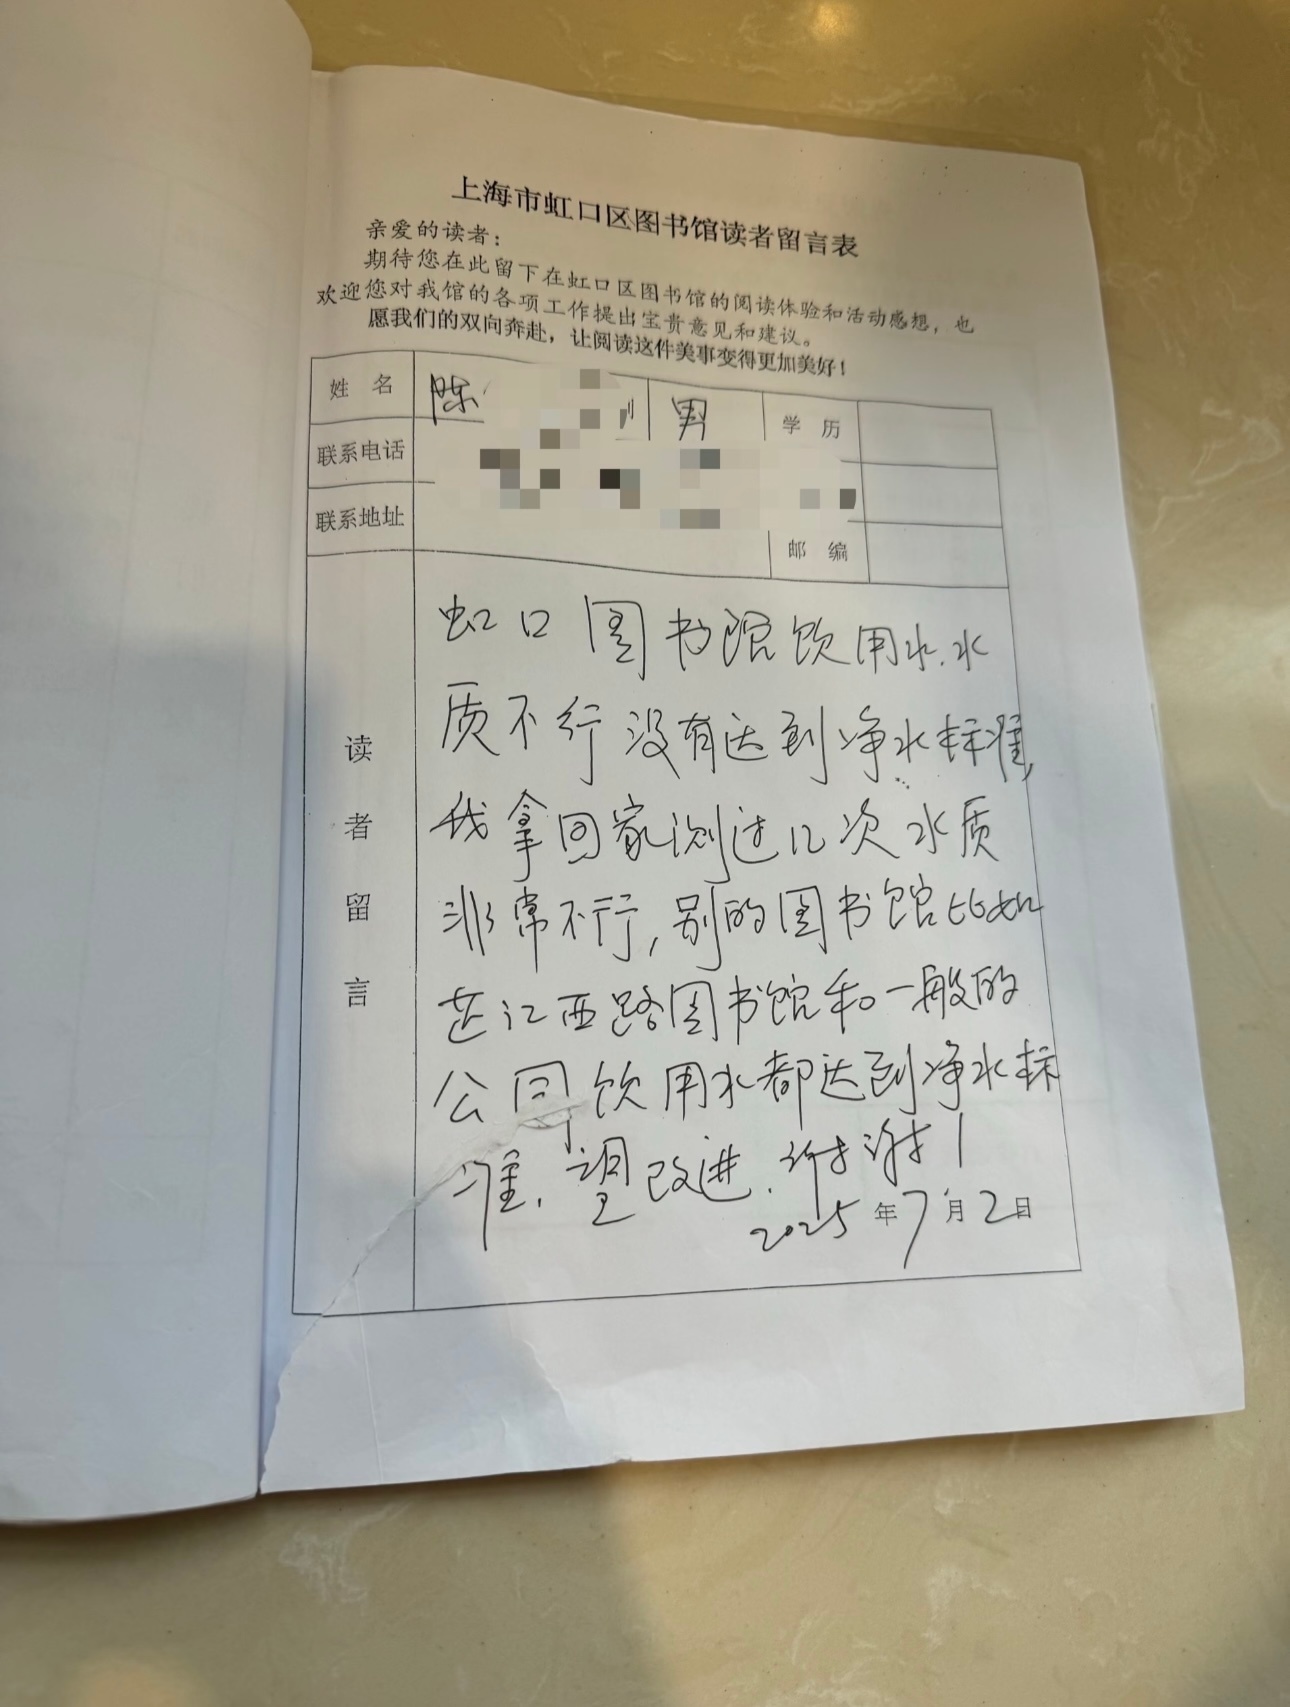 上海市虹口区图书馆读者留言表
亲爱的读者：
期待您在此留下在虹口区图书馆的阅读体验和活动感想，也
欢迎您对我馆的各项工作提出宝贵意见和建议。
愿我们的双向奔赴，让阅读这件美事变得更加美好！
姓 名 陈 男 学 历
联系电话
联系地址
邮 编
读者留言
虹口图书馆饮用水.水
质不行没有达到净水标准,
我拿回家测过几次水质
非常不行,别的图书馆比如
芷江西路图书馆和一般的
公司饮用水都达到净水标
准.望改进.谢谢!
2025年7月2日